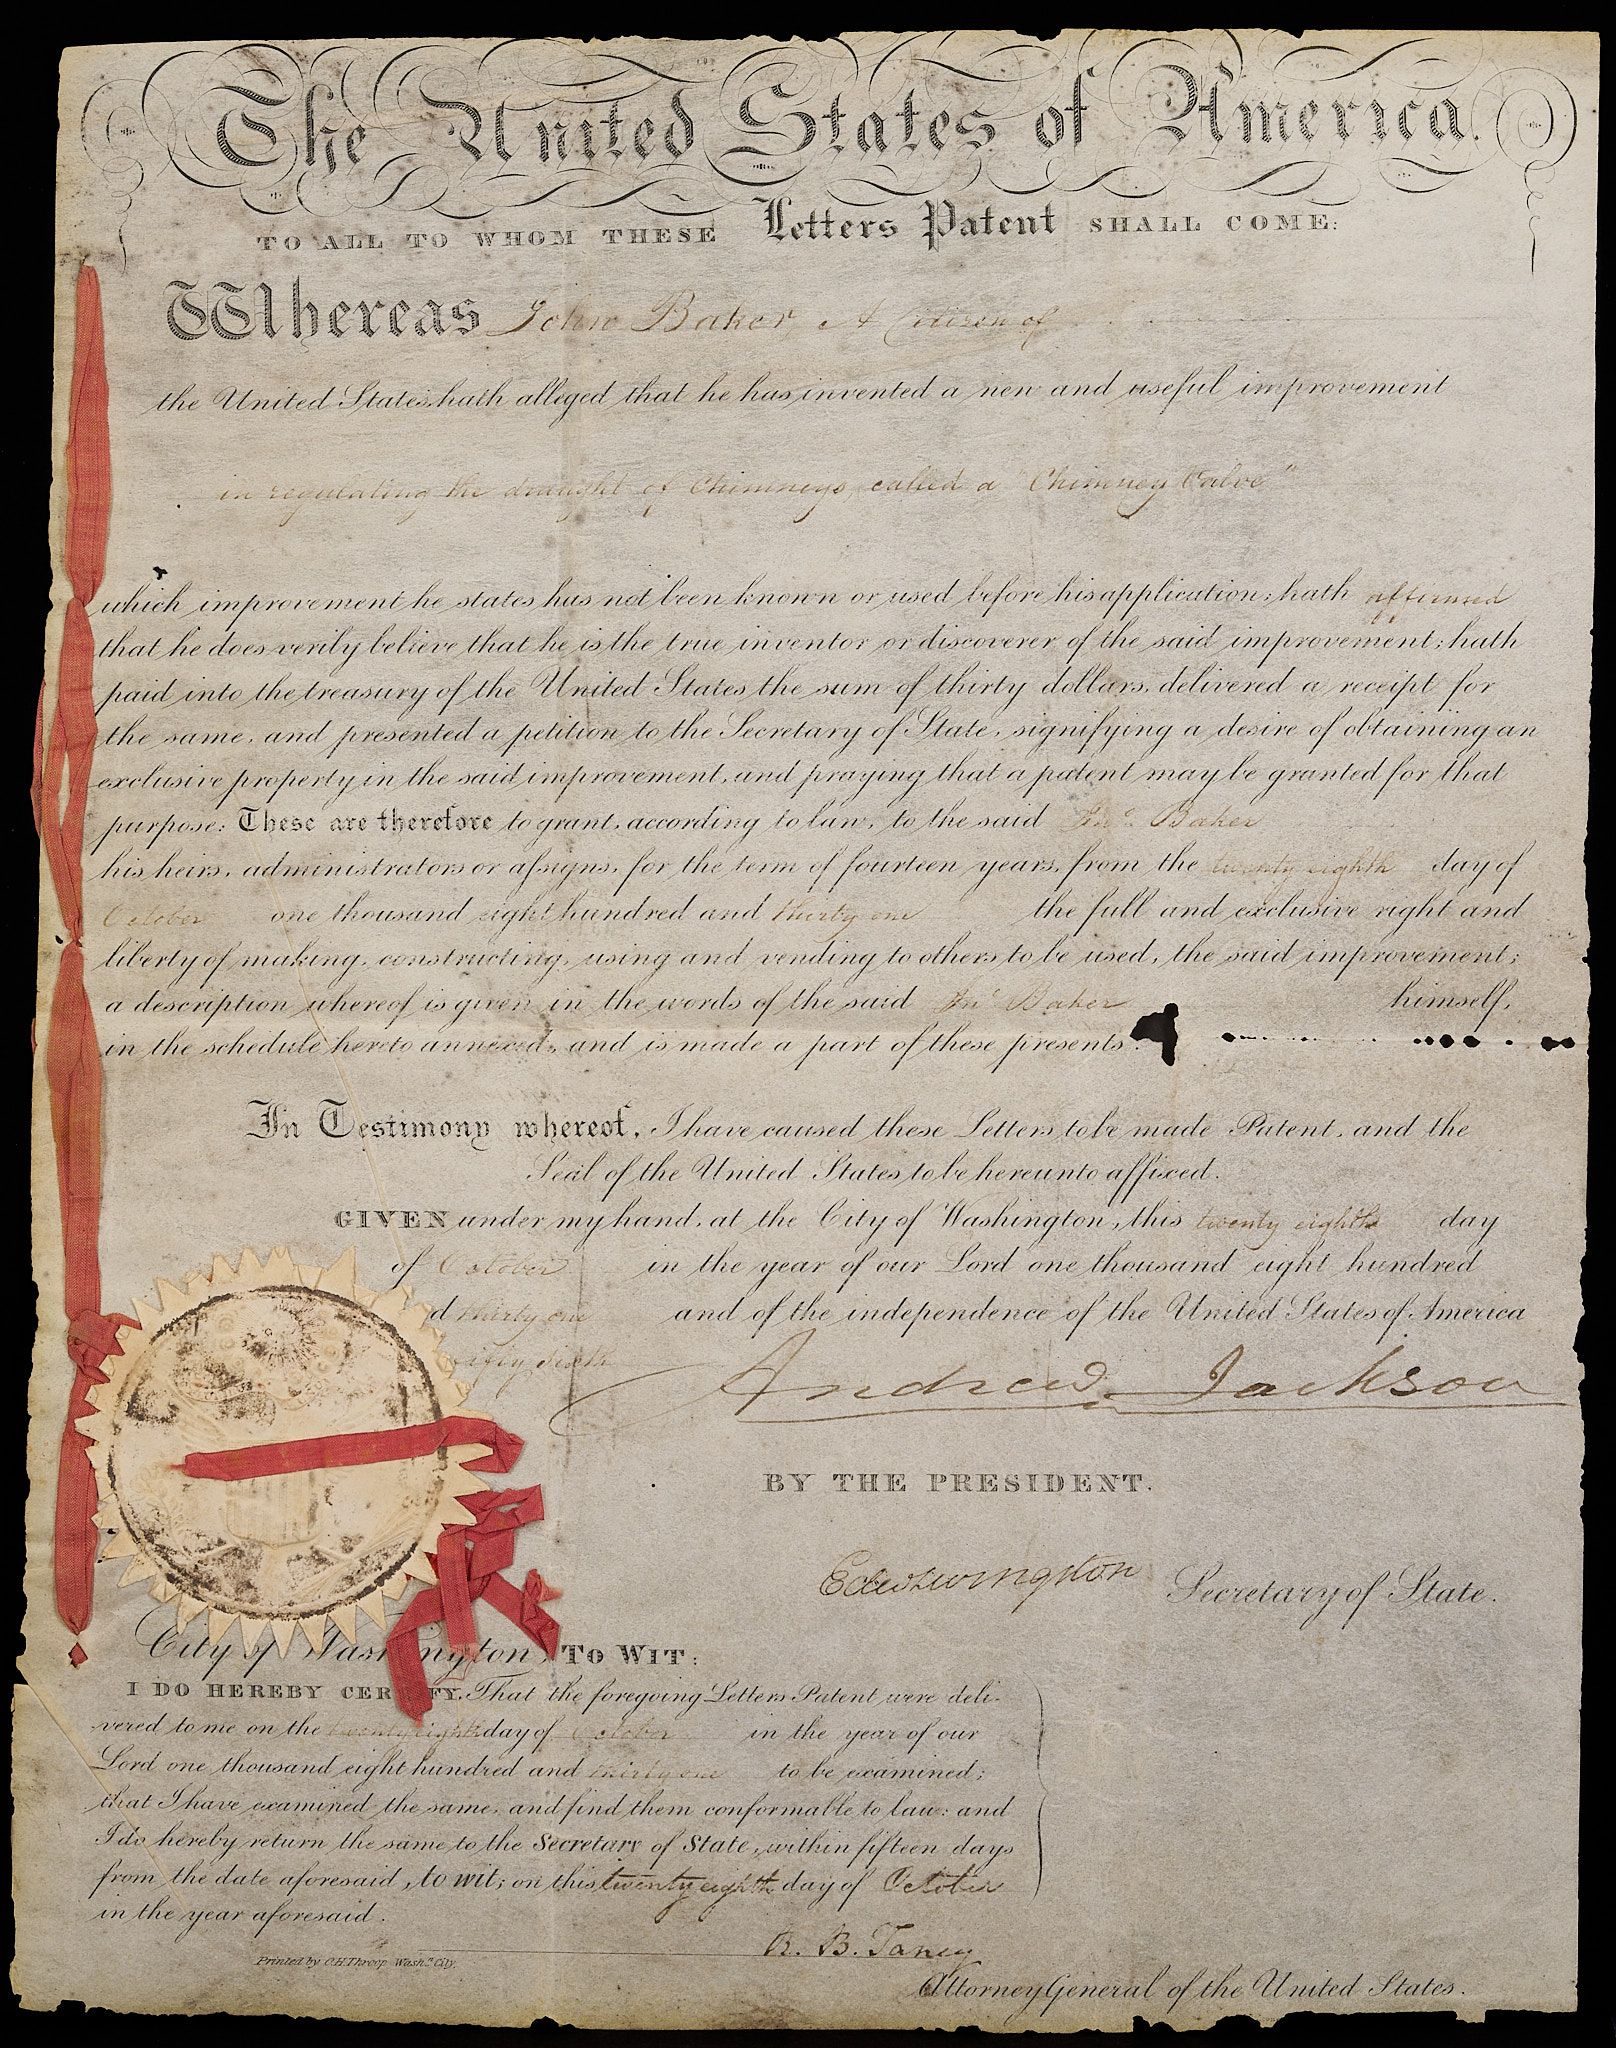 The United States of America.
TO ALL TO WHOM THESE Letters Patent SHALL COME:
Whereas John Baker, A Citizen of
the United States, hath alleged that he has invented a new and useful improvement
in regulating the draught of Chimneys, called a "Chimney Valve"
which improvement he states has not been known or used before his application; hath affirmed
that he does verily believe that he is the true inventor or discoverer of the said improvement; hath
paid into the treasury of the United States the sum of thirty dollars, delivered a receipt for
the same, and presented a petition to the Secretary of State, signifying a desire of obtaining an
exclusive property in the said improvement, and praying that a patent may be granted for that
purpose: These are therefore to grant, according to law, to the said Jno. Baker
his heirs, administrators or assigns, for the term of fourteen years, from the twenty eighth day of
October one thousand eight hundred and thirty one the full and exclusive right and
liberty of making, constructing, using and vending to others to be used, the said improvement;
a description whereof is given in the words of the said Jno. Baker himself,
in the schedule hereto annexed, and is made a part of these presents.
In Testimony whereof, I have caused these Letters to be made Patent, and the
Seal of the United States to be hereunto affixed.
GIVEN under my hand, at the City of Washington, this twenty eighth day
of October in the year of our Lord one thousand eight hundred
d thirty one and of the independence of the United States of America
fifty sixth
Andrew Jackson
BY THE PRESIDENT.
Edw Livingston Secretary of State.
City of Washington, TO WIT:
I DO HEREBY CERTIFY, That the foregoing Letters Patent were deli-
vered to me on the twenty eighth day of October in the year of our
Lord one thousand eight hundred and thirty one to be examined;
that I have examined the same, and find them conformable to law: and
I do hereby return the same to the Secretary of State, within fifteen days
from the date aforesaid, to wit; on this twenty eighth day of October
in the year aforesaid.
R. B. Taney
Printed by C.H. Throop Washn. City.
Attorney General of the United States.